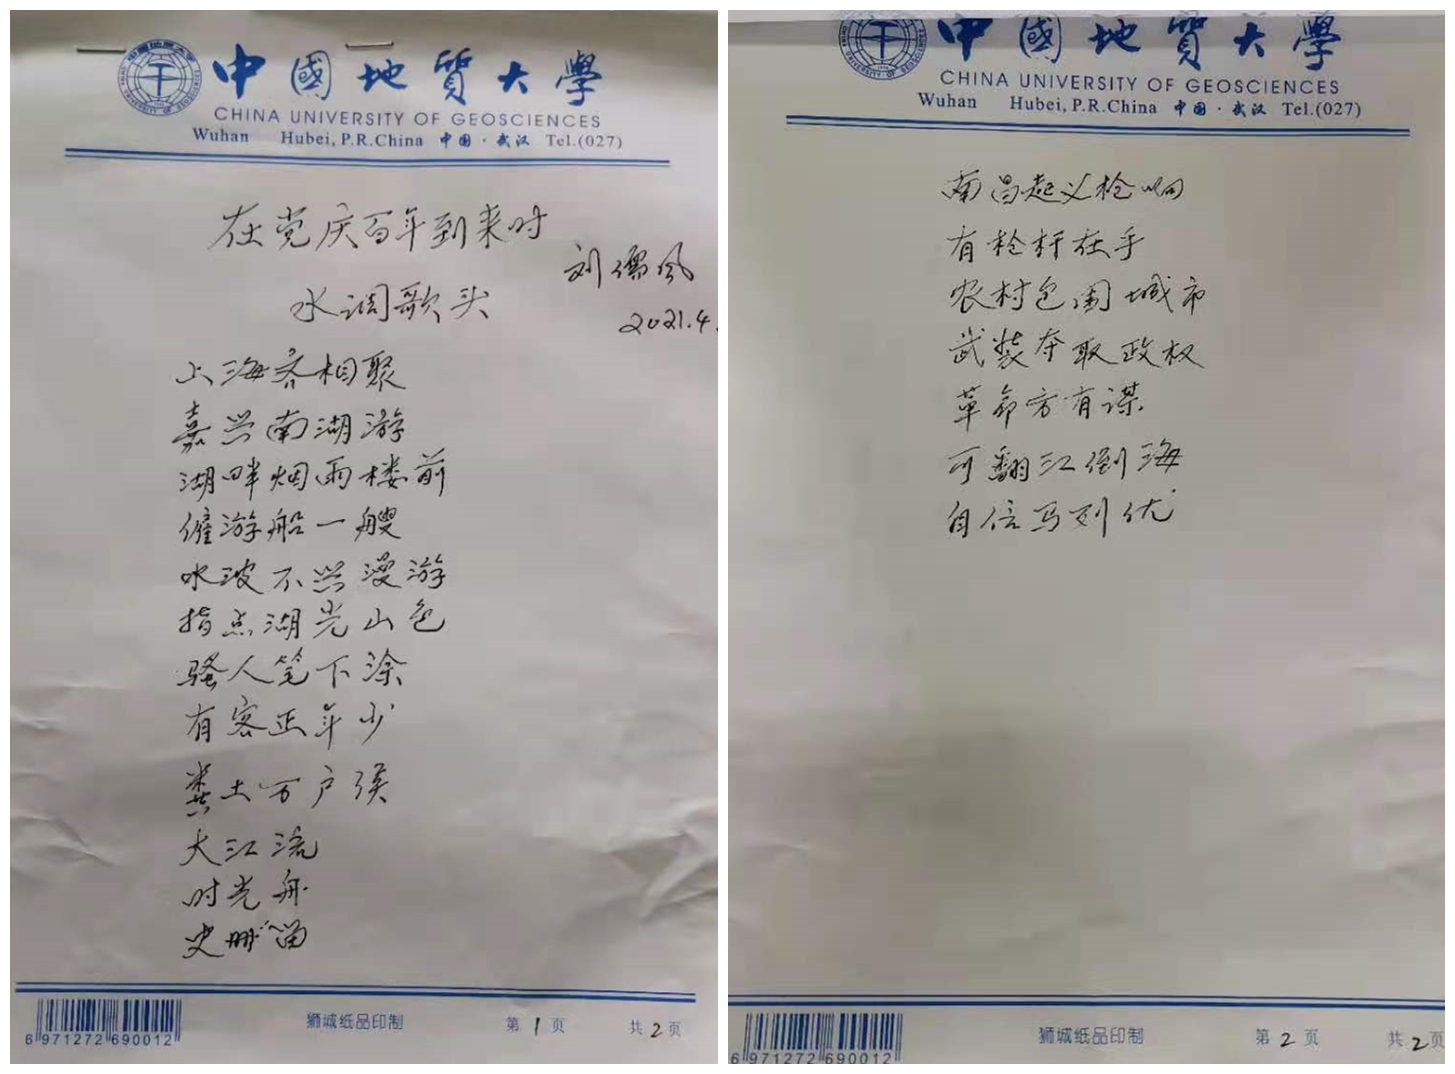 中國地質大學
CHINA UNIVERSITY OF GEOSCIENCES
Wuhan Hubei, P.R.China 中国·武汉 Tel.(027)
在党庆百年到来时
刘儒风
水调歌头
2021.4.
上海齐相聚
嘉兴南湖游
湖畔烟雨楼前
催游船一艘
水波不兴漫游
指点湖光山色
骚人笔下涂
有客正年少
粪土万户侯
大江流
时光舟
史册留
6 971272 690012
狮城纸品印制
第 1 页
共 2 页
中國地質大學
CHINA UNIVERSITY OF GEOSCIENCES
Wuhan Hubei, P.R.China 中国·武汉 Tel.(027)
南昌起义枪响
有枪杆在手
农村包围城市
武装夺取政权
革命方有谋
可翻江倒海
自信马列优
6 971272 690012
狮城纸品印制
第 2 页
共 2 页